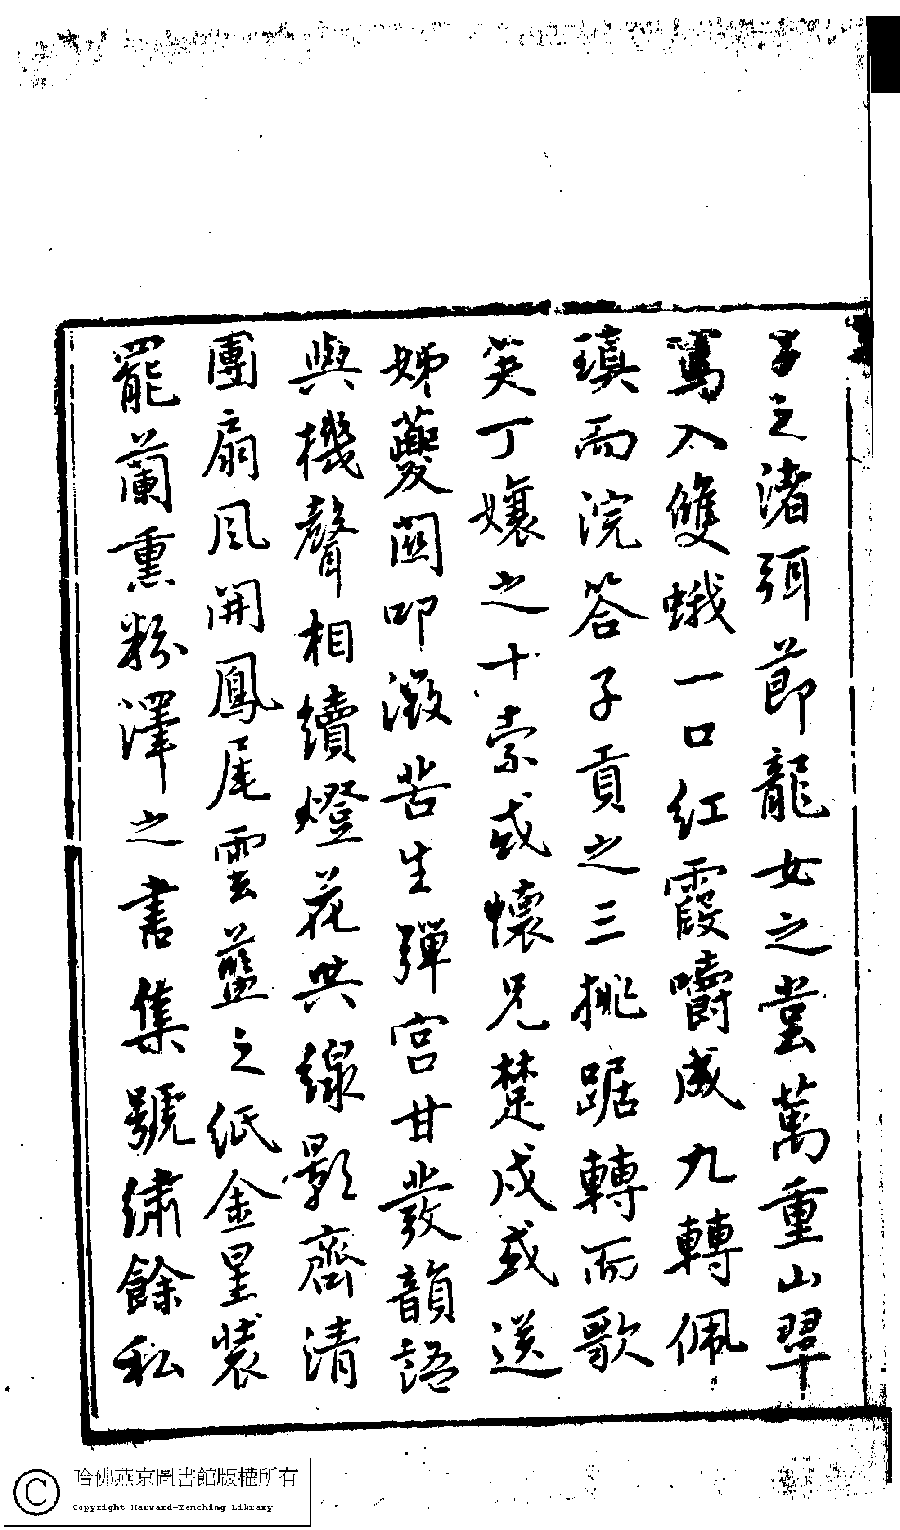 子之渚弭節龍女之堂萬重山翠
萬入雙蛾一口紅霞嚼成九轉佩
瑱而浣答子貢之三挑踞轉而歌
笑丁孃之十索或懷兄楚戍或送
姊夔關叩澂苦生彈宮甘發韻語
與機聲相續燈花共線影齊清
團扇風開鳳尾雲藍之紙金星裝
罷蘭熏粉澤之書集號繡餘私
哈佛燕京圖書館版權所有
Copyright Harvard-Yenching Library